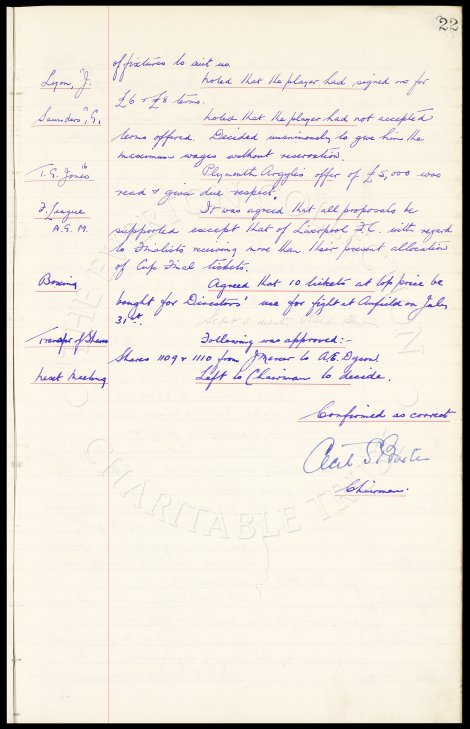 22
of fixtures to suit us.
Lyon, "J. Noted that the player had signed on for
£6 & £8 terms.
Saunders, "G. Noted that the player had not accepted
terms offered. Decided unanimously to give him the
maximum wages without reservation.
T.G. Jones" Plymouth Argyle's offer of £5,000 was
read & given due respect.
F. League It was agreed that all proposals be
A.G.M. supported except that of Liverpool F.C. with regard
to Finalists receiving more than their present allocation
of Cup Final tickets.
Boxing Agreed that 10 tickets at top price be
bought for Directors' use for fight at Anfield on July
31st.
Transfer of Shares Following was approved:-
Shares 1109 & 1110 from J. Mercer to A.E. Dyson.
Next Meeting Left to Chairman to decide.
Confirmed as correct
Cecil S. Baxter
Chairman.
THE EVERTON
CHARITABLE TRUST